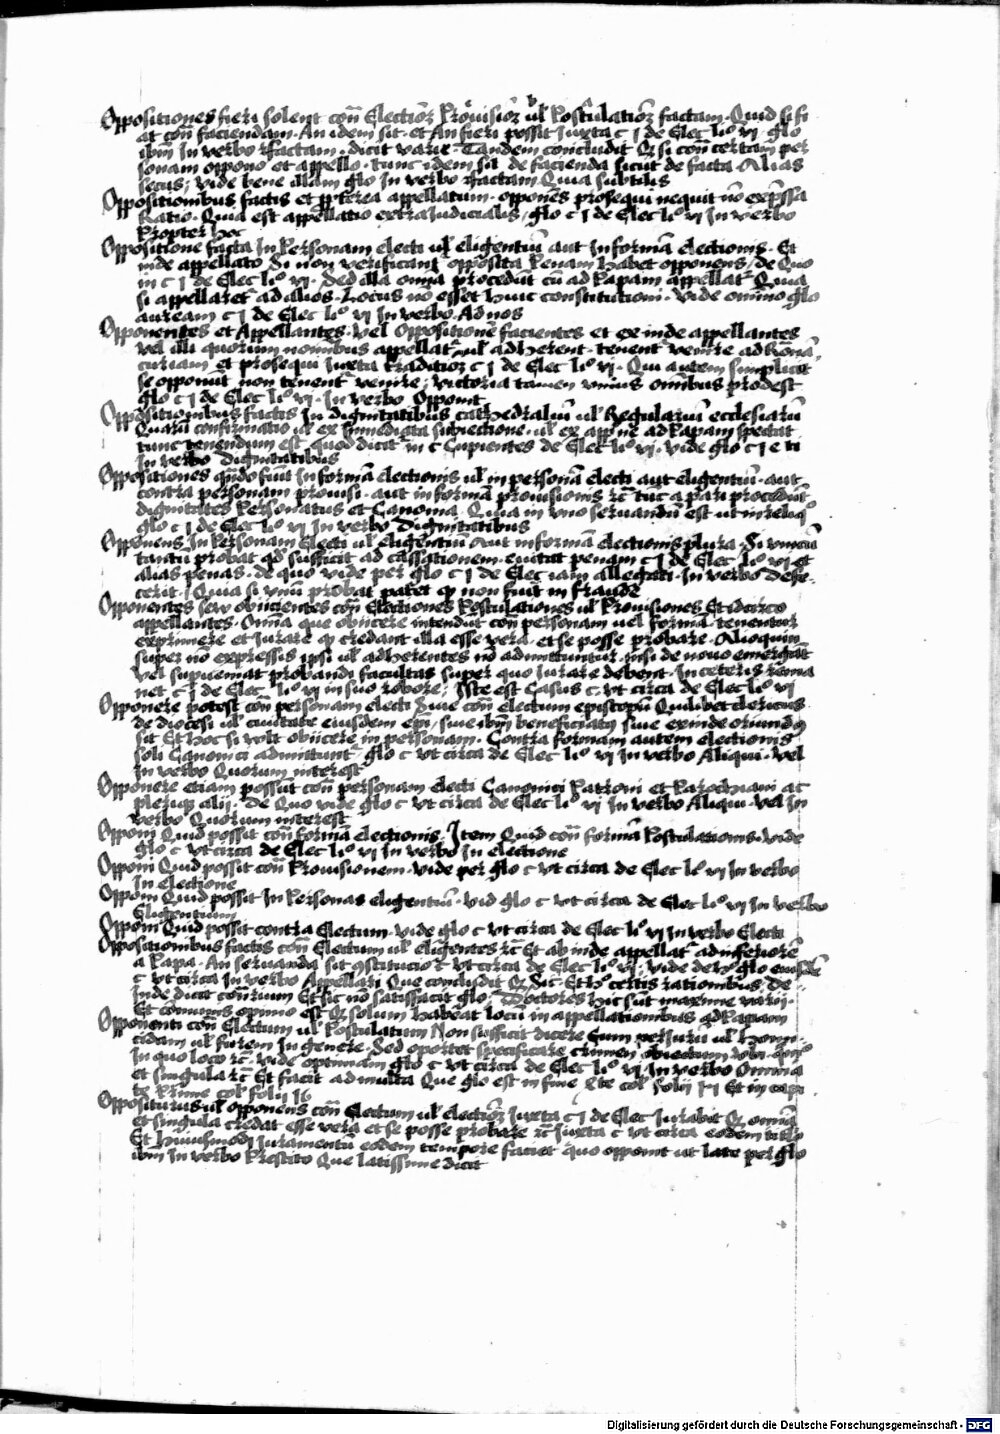 Oppositiones fieri solent con̄ Electiōꝫ Prouisiōꝫ vl̄ Postulatiōꝫ factam. Quid si fi
at con̄ faciendam. An idem sit. et An fieri possit Juxta c j de Elec liº vj. glo
ibm̄ In verbo factam. dicit varie. Tandem concludit Q si con̄ certam per
sonam oppono et appello. tunc idem sit de facienda sicut de facta. Alias
secus; vide bene illam glo In verbo factam. Quia subtilis
Oppositionibus factis et ppterea appellatum. opponēs prosequi nequit nō exp̄ssa
Ratio. Quia est appellatio extraiudicialis, glo c j de Elec liº vj In verbo
Propter hoc
Oppositione facta In Personam electi vl̄ eligentiū aut In formā electionis. Et
inde appellato Si non verificant opposita Penam habet opponens, de Quo
in c j de Elec liº vj. Sed illa om̄ia procedūt cū ad Papam appellat. Quia
si appellaret ad alios. Locus nō esset huic constitutioni. vide om̄ino glo
auream c j de Elec liº vj In verbo. Ad nos
Opponentes et Appellantes. Vel Oppositionē facientes et exinde appellantes
vel illi quorum nominibus appellat vl̄ adherent. tenent venire ad Romā
curiam et prosequi Juxta traditaꝫ c j de Elec liº vj. Qui autem simplicit
se opponit non tenent venire; victoria tamen vnius om̄ibus prodest
glo c j de Elec liº vj. In verbo Opponit
Oppositionibus factis In dignitatibus cathedraliū vl̄ Regulariū ecclesiarū
Quarū confirmatio vl̄ ex Immediata subiectione. vl̄ ex app̄ne ad Papam spectat
tunc tenendum est quod dicit in c Cupientes de Elec liº vj. vide glo c j e ti
In verbo Dignitatibus
Oppositiones qn̄do fiūt In formā electionis vl̄ in personā electi aut eligentiū. aut
contra personam prouisi. aut in formā prouisionis rc̄ tūc a pari procedūt
dignitates Personatus et Canonia. Quia in vno seruandū est ut in reliqº
glo c j de Elec liº vj In verbo Dignitatibus
Opponens In Personam Electi vl̄ eligentiū Aut in formā electionis plura. Si vnicū
tantū probat qđ sufficit ad cassationem. euitat penam c j de Elec liº vj et
alias penas. de quo vide per glo c j de Elec iam allegati. In verbo Defe-
cerit. Quia si vnū probat patet ꝙ non fuit in fraude
Opponentes seu obiicientes con̄ Electiones Postulationes vl̄ Prouisiones Et idcirco
appellantes. Om̄ia que obiicere intendūt con̄ personam vel formā. tenentur
exprimere et Jurare ꝙ credant illa esse vera. et se posse probare. Alioquin
super nō expressis ipsi vl̄ adherentes nō admittuntur. nisi de nouo emergāt
vel supueniat probandi facultas super quo Jurare debent. In ceteris rema
net c j de Elec liº vj in suo robore; Iste est Casus c. vt circa de Elec liº vj
Opponere potest con̄ personam electi Siue con̄ electum episcopū Quilibet clericus
de diocesi vl̄ ciuitate eiusdem epi, siue ibm̄ beneficiatꝰ siue exinde oriundꝰ
sit Et hoc si volt obiicere in personam. Contra formam autem electionis
soli Canonici admittunt. glo c vt circa de Elec liº vj In verbo Aliqui. vel
In verbo Quorum interest
Opponere etiam possūt con̄ personam electi Canonici Patroni et Parochiani at
pleriqꝫ alij. De Quo vide glo c vt circa de Elec liº vj In verbo Aliqui. vel In
verbo Quorum interest
Opponi Quid possit con̄ formā electionis. Item Quid con̄ formā Postulationis. vide
glo c vt circa de Elec liº vj In verbo In electione
Opponi Quid possit con̄ Prouisionem. vide per glo c vt circa de Elec lº vj In verbo
In electione
Opponi Quid possit In Personas eligentiū. vid glo c vt circa de Elec liº vj In verbo
Eligentium
Opponi Quid possit contra Electum. vide glo c vt circa de Elec liº vj In verbo Electi
Oppositionibus factis con̄ Electum vl̄ eligentes rc̄ Et ab inde appellat ad inferiorē
a Papa. An seruanda sit ɔstitucio c vt circa de Elec liº vj; vide de hº glo eiusdē
c vt circa In verbo Appellari Que concludit Q Sic. Et hº certis rationibus. De-
inde dicit con̄rium Et sic nō satisfacit glo; Doctores hic sūt maxime varij.
Et cōmunis opinio est Q solum habeat locū in appellationibus ad Papam
Opponenti con̄ Electum vl̄ Postulatum Non sufficit dicere Eum periurū vl̄ homi-
cidam vl̄ furem In genere. Sed oportet specificare crimen obiectum vbi. qn̄
In quo loco rc̄. vide optimam glo c vt circa de Elec liº vj In verbo Omnia
et singula rc̄ Et facit ad multa Que glo est in fine Et in capi
te Prime col folij 16
Oppositurus vl̄ opponens con̄ Electum vl̄ electiōꝫ Juxta c j de Elec Jurabit Q omnia
et singula credat esse vera et se posse probare rc̄ Juxta c vt circa eodem titulo
Et huiusmodj Juramentū eodem tempore faciet quo opponit ut late per glo
ibm̄ In verbo Prestito Que latissime dicit
Digitalisierung gefördert durch die Deutsche Forschungsgemeinschaft - DFG